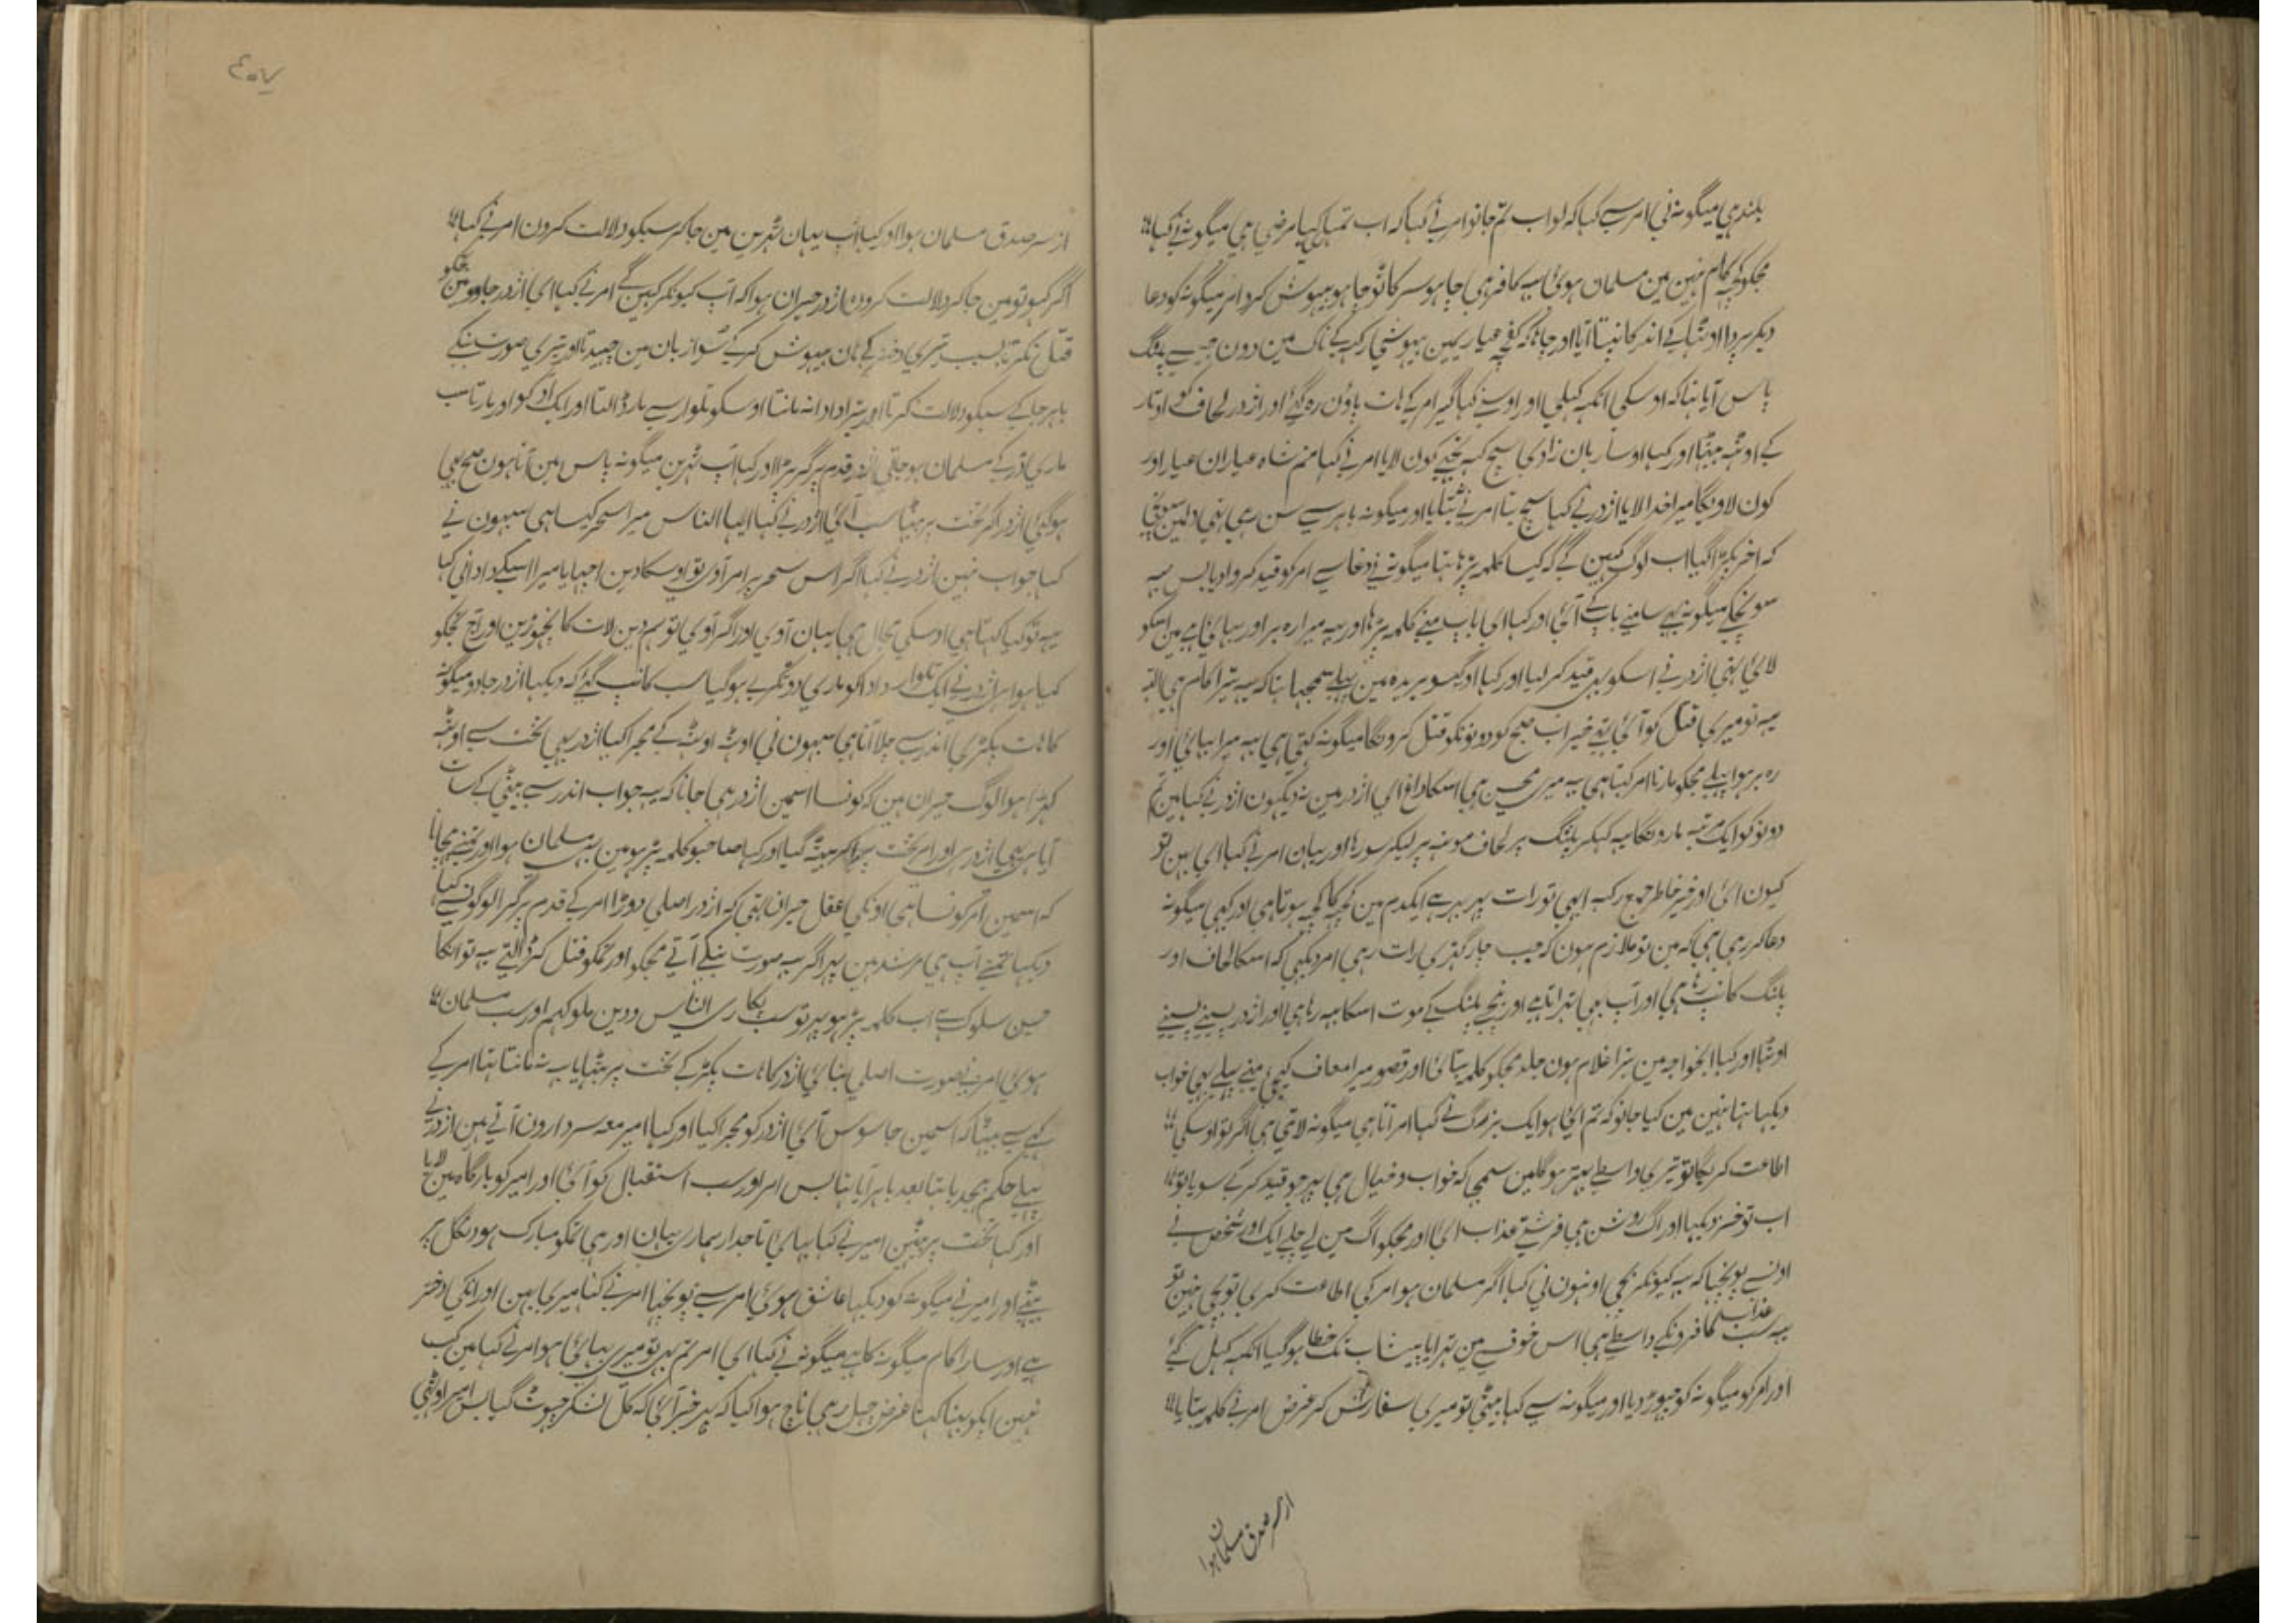 بلند ہی میگونہ نی امر سے کہا کہ لو اب تم جانو امر نے کہا کہ اب تمہاری کیا مرضی ہی میگونہ نے کہا
مجکو کچہ کام نہین مین مسلمان ہوئی یہ کافر ہی چاہو سر کاٹو چاہو بیہوش کرو امر میگونہ کو دعا
دیکر پردا اوٹھا کے اندر کانپتا آیا اور چاہا کہ کفچہ عیاری مین بیہوشی رکہہ کے ناک مین دون جیسے پلنگ
پاس آیا تہا کہ اوسکی انکہہ کہلی اور اوسنے کہا گیر امر کے ہات پاؤن رہ گئے اور اژدر لحاف کو اوتار
کے اوٹھہ بیٹھا اور کہا او ساربان زادی سچ کہہ تجہے کون لایا امر نے کہا منم شاہ عیاران عیار اور
کون لاویگا میرا خدا لایا اژدر نے کہا سچ بتا امر نے نبتایا اور میگونہ باہر سے سن رہی تہی دلمین سونچی
کہ اخر پکڑا گیا اب لوگ کہین گے کہ کیا کلمہ پڑہا تہا میگونہ نے دغا سے امر کو قید کروا دیا بس یہ
سونچکے میگونہ بہی سامنے باپ کے آئی اور کہا ای باپ مینے کلمہ پڑہا اور یہ میرا رہبر اور بہائی ہے مین اسکو
لائی تہی اژدر نے اسکو بہی قید کر لیا اور کہا او گیسو بریدہ مین پہلے سمجہا تہا کہ یہ تیرا کام ہی البتہ
یہ تو میری قتل کو آئی تہے خیر اب صبح کو دونونکو قتل کرونگا میگونہ کہتی ہی یہ میرا بہائی اور
رہبر ہوا پہلے مجکو مارنا امر کہتا ہی یہ میری محسن ہی اسکا داغ ای اژدر مین نہ دیکہون اژدر نے کہا مین تم
دونو کو ایک مرتبہ مارونگا یہ کہکر پلنگ پر لحاف مونہہ پر لیکر سو رہا اور یہان امر نے کہا ای بہن تو
کیون ائی اور خیر خاطر جمع رکہہ ابہی تو رات پہر بہر ہے ایکدم مین کچہہ کا کچہہ ہوتا ہی اور کہی میگونہ
دعا کر رہی ہی کہ مین نو ملازم ہون کہ جب چار گہڑی رات رہی امر دیکہی کہ اسکا لحاف اور
پلنگ کانپ رہا ہی اور آپ بہی تہراتا ہے اور نیچے پلنگ کے موت اسکا بہہ رہا ہی اور اژدر پسینے پسینے
اوٹھا اور کہا ایخواجہ مین تیرا غلام ہون جلد مجکو کلمہ بتائی اور قصور میرا معاف کیجی مینے پہلے بہی خواب
دیکہا تہا نہین مین کیا جانو کہ تم ائی ہو ایک بزرگ نے کہا امر آتا ہی میگونہ لاتی ہی اگر تو اوسکی
اطاعت کریگا تو تیری واسطے بہتر ہوگا مین سمجہی کہ خواب و خیال ہی پہر جو قید کر کے سویا تو
اب تو خیز دیکہا اور اگ روشن ہی فرشتے عذاب ائی اور مجکو اگ مین لے چلے ایک اور شخص نے
اونسے پوچہا کہ یہ کیونکر بچی اونہون نی کہا اگر مسلمان ہو امر کی اطاعت کری تو بچی نہین تو
یہ سب عذاب کافرونکے واسطے ہی اس خوف سے مین تہرایا پیشاب تک خطا ہو گیا انکہہ کہل گئے
اور امر کو میگونہ کو چہوڑ دیا اور میگونہ سے کہا بیٹی تو میری سفارش کر غرض امر نے کلمہ بتایا
از سر صدق مسلمان ہوا
٤٠٧
از سر صدق مسلمان ہوا اور کہا آپ یہان ٹہرین مین جا کر سبکو دلالت کرون امر نے کہا
اگر کہو تو مین جا کر دلالت کرون اژدر حیران ہوا کہ آپ کیونکر کہین گے امر نے کہا ای اژدر جادو مین تجکو
قتل نکرتا بسبب تیری دختر کے ہان بیہوش کر کے سوا زبان مین چہیدتا اور تیری صورت بنکے
باہر جا کے سبکو دلالت کرتا اور تیرا دادا نہ مانتا اوسکو تلوار سے مار ڈالتا اور ایک ادکو اور مارتا سب
ماری ڈر کے مسلمان ہو جاتی اژدر قدم پر گر پڑا اور کہا آپ ٹہرین میگونہ پاس مین آتا ہون صبح بہی
ہو گئی اژدر اکر تخت پر بیٹھا سب آئی اژدر نے کہا ایہا الناس میرا سحر کیسا ہی سبہون نے
کہا جواب نہین اژدر نے کہا اگر اس سحر پر امر آوی تو اوسکا دین اچہا یا میرا اسکے دادا نی کہا
یہ تو کیا کہتا ہی اوسکی مجال ہی یہان آوی اور اگر آوی تو ہم دین لات کا نچہوڑین اور آج تجکو
کیا ہوا اس اژدر نے ایک تلوار دادا کو ماری دو ٹکری ہو گیا سب کانپ گئے کہ دیکہا اژدر جادو میگونہ
کا ہات پکڑی اندر سے چلا آتا ہی سبہون نی اوٹھہ اوٹھہ کے مجرا کیا اژدر بہی تخت سے اوٹھہ
کہڑا ہوا لوگ حیران ہین کہ کونسا اسمین اژدر ہی جانا کہ یہ جواب اندر سے بیٹی کے سات
آیا ہی یہی اژدر ہی اور امر تخت پر اکر بیٹھہ گیا اور کہا صاحبو کلمہ پڑہو مین بہی مسلمان ہوا اور تمنے پہچانا
کہ اسمین امر کونسا ہی اونکی عقل حیران تہی کہ اژدر اصلی دوڑا امر کے قدم پر گرا لوگونسے کہا
دیکہا تمنے آپ ہی مرشد ہین پہر اگر یہ صورت بنکے آتے مجکو اور تمکو قتل کر ڈالتے یہ تو انکا
حسن سلوک ہے اب کلمہ پڑہو پہر تو سب پکاری الناس و دین ملوکہم اور سب مسلمان
ہوئی امر بصورت اصلی بنائی اژدر کا ہات پکڑ کے تخت پر بٹھایا یہ نہ مانتا تہا امر کے
کہے سے بیٹھا کہ اسمین جاسوس آئی اژدر کو مجرا کیا اور کہا امیر معہ سردارون آتے ہین اژدر نے
پہلے حکم بہیجدیا تہا بعد باہر آیا تہا بس امر اور سب استقبال کو آئی اور امیر کو بارگاہ مین لایا
اور کہا تخت پر بیٹہین امیر نے کہا بہائی تاجدار ہماری یہان اور ہی تمکو مبارک ہو دنگل پر
بیٹھے اور امیر نے میگونہ کو دیکہا عاشق ہوئی امر سے پوچہا امر نے کہا میری بہن اور انکی دختر
ہے اور سارا کام میگونہ کا ہے میگونہ نے کہا ای امر تم بہی تو میری بہائی ہو امر نے کہا مین کب
نہین ایکو بہنا کہتا غرض چہل رہی ناچ ہوا کیا کہ پہر خبر آئی کہ کل لشکر چہوٹ گیا بس امیر اوٹھی